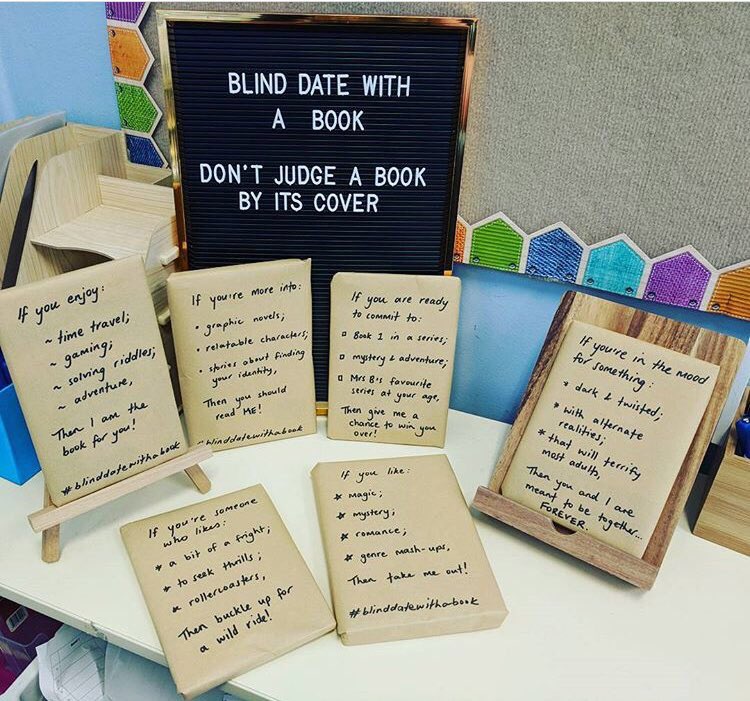 BLIND DATE WITH
A BOOK
DON'T JUDGE A BOOK
BY ITS COVER
If you enjoy:
~ time travel;
~ gaming;
~ solving riddles;
~ adventure,
Then I am the
book for you!
#blinddatewithabook
If you're more into:
• graphic novels;
• relatable characters;
• stories about finding
your identity,
Then you should
read Me!
#blinddatewithabook
If you are ready
to commit to:
▫ Book 1 in a series;
▫ mystery & adventure;
▫ Mrs B's favourite
series at your age,
Then give me a
chance to win you
over!
If you're in the mood
for something:
* dark & twisted;
* with alternate
realities;
* that will terrify
most adults,
Then you and I are
meant to be together...
FOREVER.
If you're someone
who likes:
* a bit of a fright;
* to seek thrills;
* rollercoasters,
Then buckle up for
a wild ride!
If you like:
☆ magic;
☆ mystery;
☆ romance;
☆ genre mash-ups,
Then take me out!
#blinddatewithabook